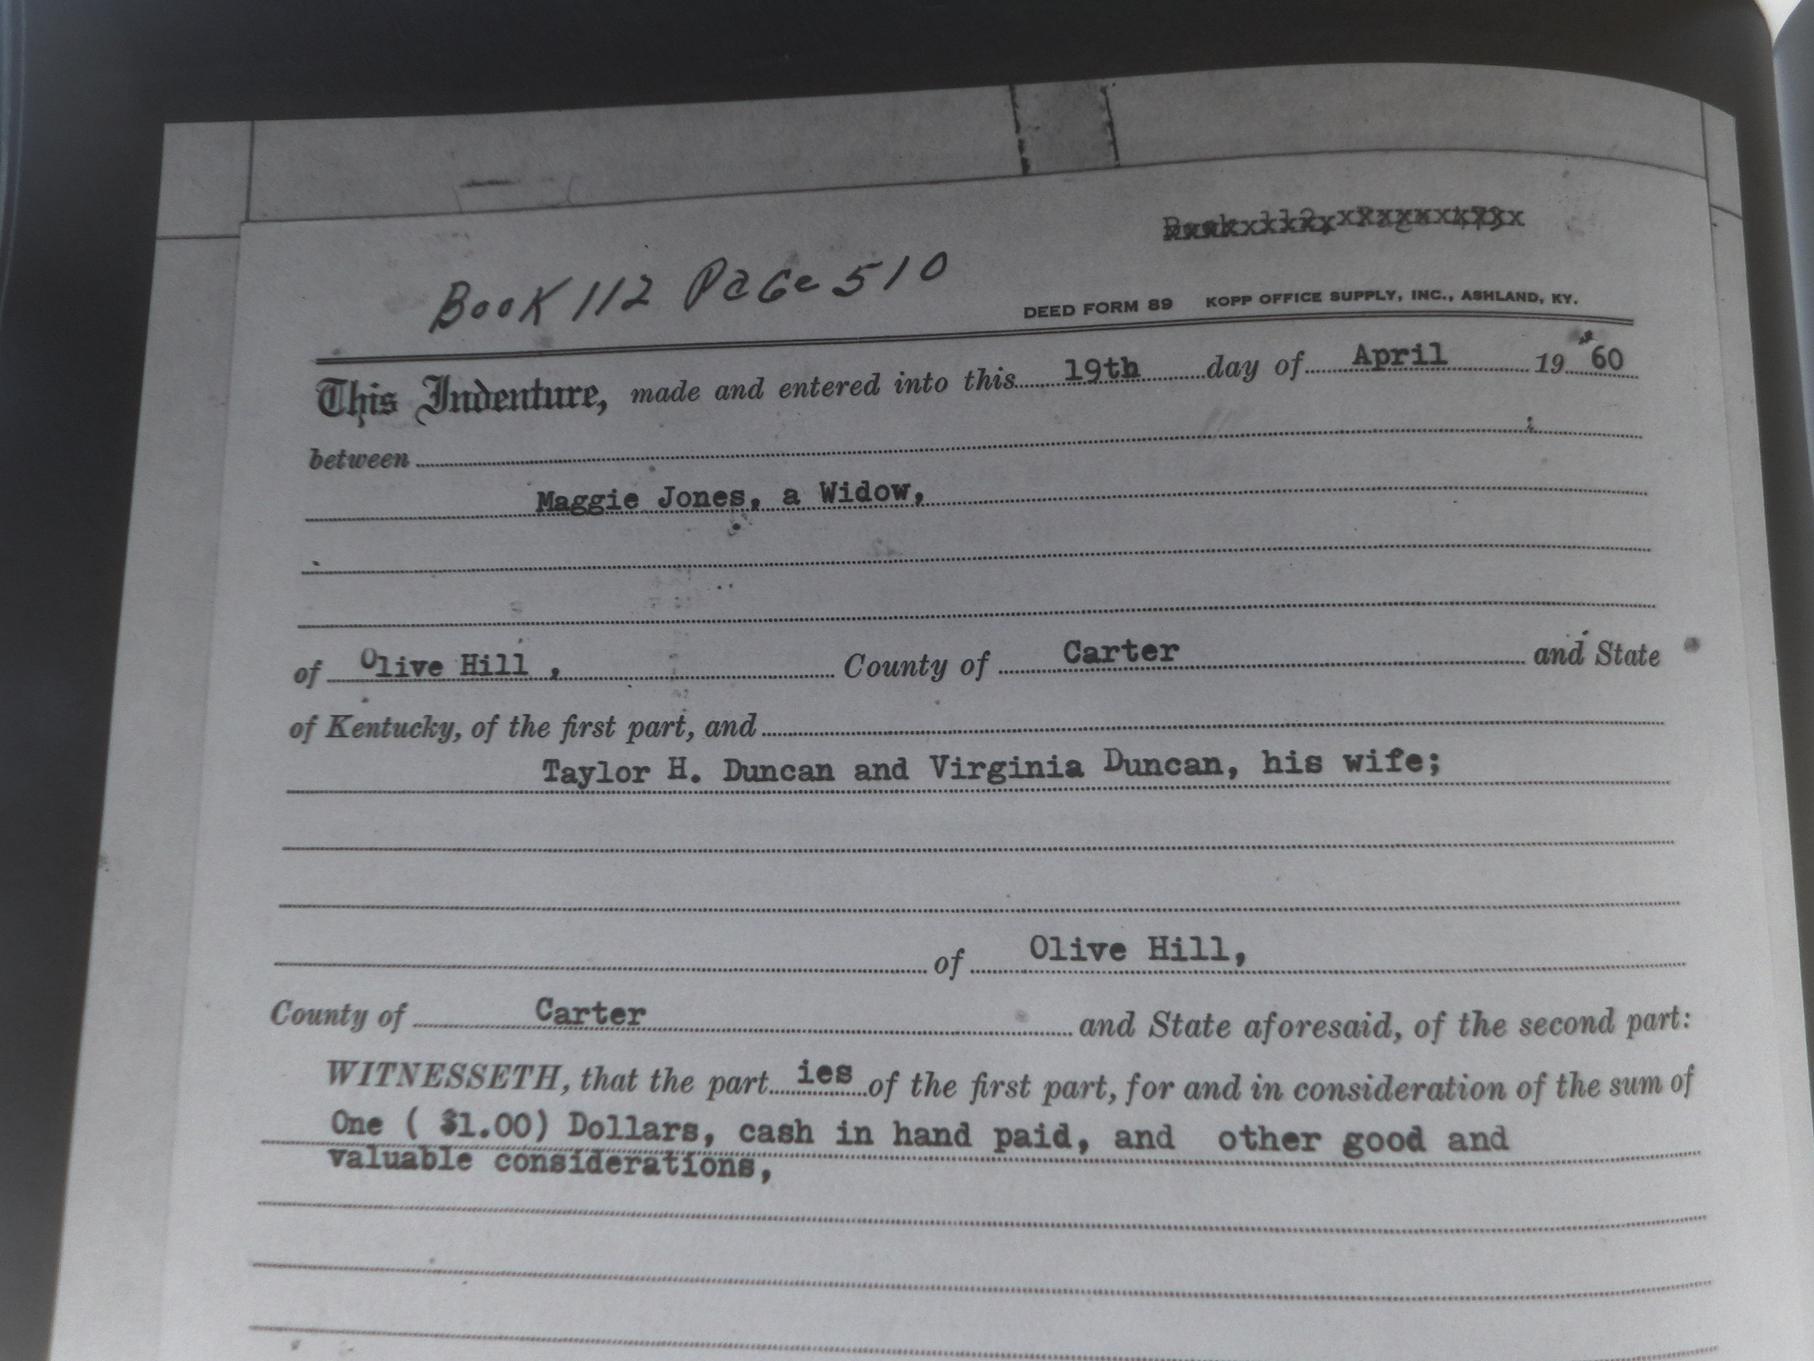 Book 112 Page 510
DEED FORM 89 KOPP OFFICE SUPPLY, INC., ASHLAND, KY.
This Indenture, made and entered into this 19th day of April 19 60
between
Maggie Jones, a Widow,
of Olive Hill , County of Carter and State
of Kentucky, of the first part, and
Taylor H. Duncan and Virginia Duncan, his wife;
of Olive Hill,
County of Carter and State aforesaid, of the second part:
WITNESSETH, that the part ies of the first part, for and in consideration of the sum of
One ( $1.00) Dollars, cash in hand paid, and other good and
valuable considerations,